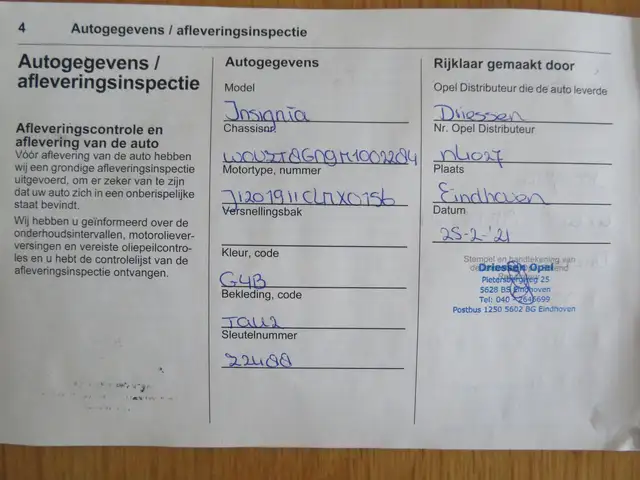 4 Autogegevens / afleveringsinspectie
Autogegevens /
afleveringsinspectie
Afleveringscontrole en
aflevering van de auto
Vóór aflevering van de auto hebben
wij een grondige afleveringsinspectie
uitgevoerd, om er zeker van te zijn
dat uw auto zich in een onberispelijke
staat bevindt.
Wij hebben u geïnformeerd over de
onderhoudsintervallen, motoroliever-
versingen en vereiste oliepeilcontro-
les en u hebt de controlelijst van de
afleveringsinspectie ontvangen.
Autogegevens
Model
Insignia
Chassisnr.
Motortype, nummer
Versnellingsbak
Kleur, code
G4B
Bekleding, code
TAU2
Sleutelnummer
Z2488
Rijklaar gemaakt door
Opel Distributeur die de auto leverde
Driessen
Nr. Opel Distributeur
NL027
Plaats
Eindhoven
Datum
25-2-'21
Stempel en handtekening van
Driessen Opel
Pietersbergweg 25
5628 BS Eindhoven
Tel: 040 - 2646699
Postbus 1250 5602 BG Eindhoven